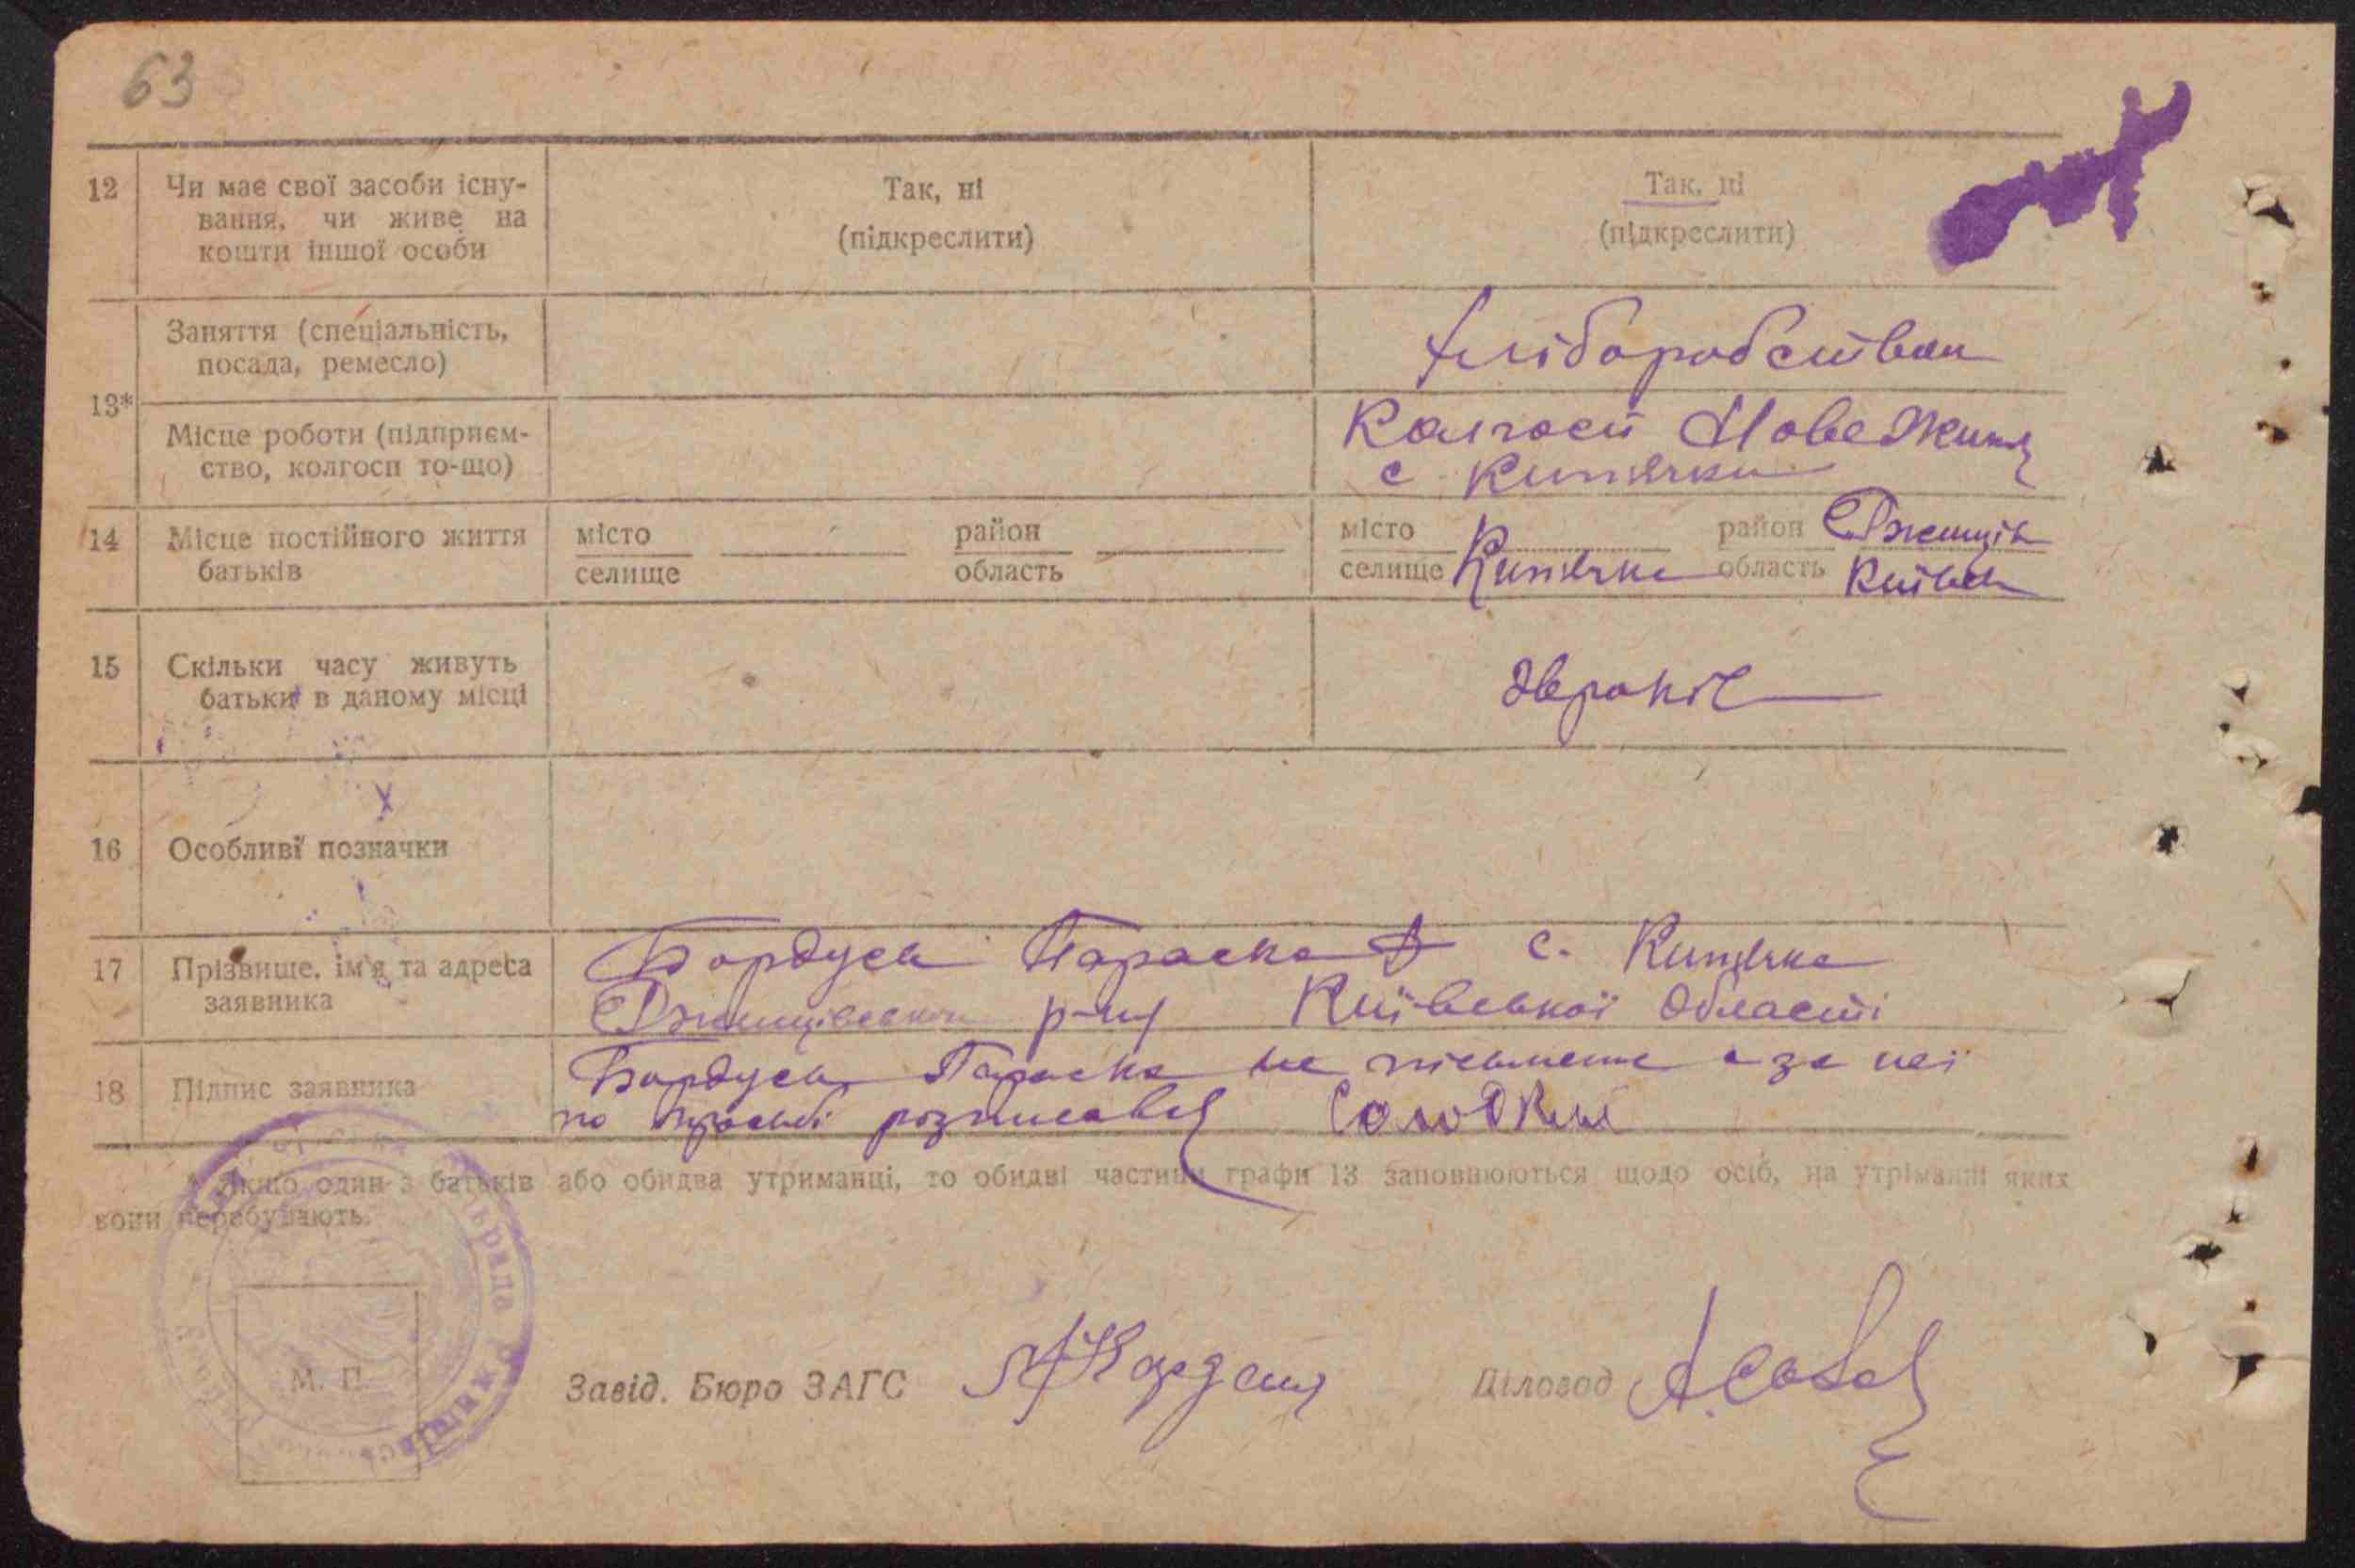 63
12 Чи має свої засоби існу-
вання, чи живе на
кошти іншої особи
Так, ні
(підкреслити)
Так, ні
(підкреслити)
13*
Заняття (спеціальність,
посада, ремесло)
Хліборобство
Місце роботи (підприєм-
ство, колгосп то-що)
Колгосп Нове Життя
с. Кип'ячка
14 Місце постійного життя
батьків
місто
селище
район
область
місто
селище Кип'ячка
район Ржищів
область Київськ
15 Скільки часу живуть
батьки в даному місці
16 Особливі позначки
17 Прізвище, ім'я та адреса
заявника
Бордусь Параска с. Кип'ячка
Ржищівськ р-ну Київської області
18 Підпис заявника
Бордусь Параска не письмена а за неї
по просьбі розписався Солодкий
* Якщо один з батьків або обидва утриманці, то обидві частини графи 13 заповнюються щодо осіб, на утріманні яких
вони перебувають.
М. П.
Завід. Бюро ЗАГС
Діловод